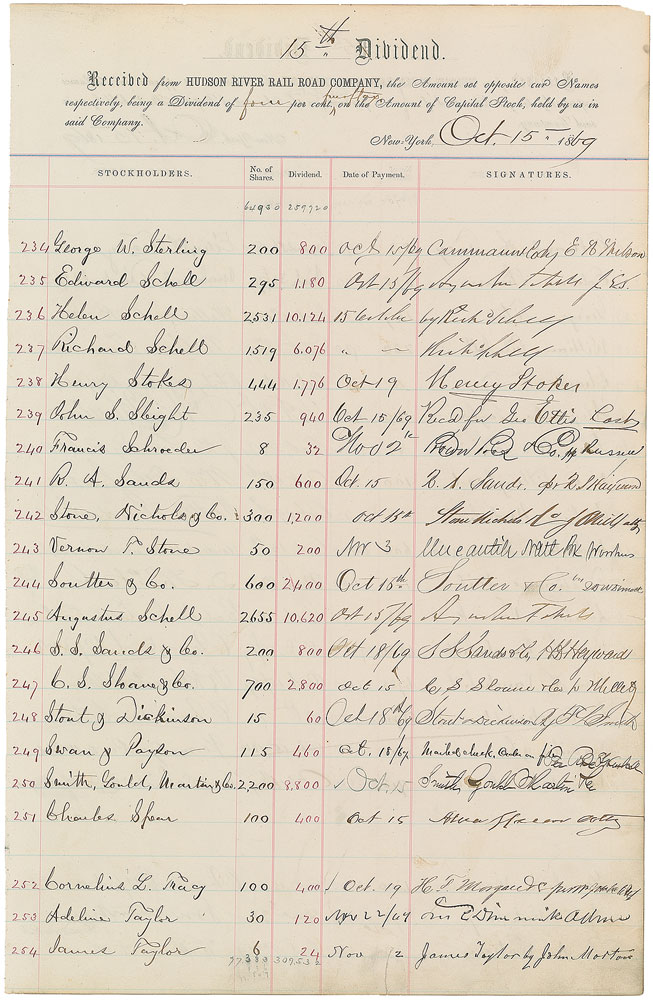 15th Dividend.
Received from HUDSON RIVER RAIL ROAD COMPANY, the Amount set opposite our Names
respectively, being a Dividend of four per cent, free of tax on the Amount of Capital Stock, held by us in
said Company.
New-York, Oct. 15 1869
STOCKHOLDERS. No. of Shares. Dividend. Date of Payment. SIGNATURES.
64930 259720
234 George W. Sterling 200 800 Oct 15/69 Cammann & Co by E N
235 Edward Schell 295 1,180 Oct 15/69 Augustus Schell
236 Helen Schell 2531 10.124 15 October by Richd Schell
237 Richard Schell 1519 6.076 " — Richd Schell
238 Henry Stokes 444 1,776 Oct 19 Henry Stokes
239 John S. Sleight 235 940 Oct 15/69 Recd for Geo Ellis Cash
240 Francis Schroeder 8 32 Nov 2 Brown Bros & Co.
241 R. A. Sands 150 600 Oct 15 R. A. Sands.
242 Stone, Nichols & Co. 300 1,200 Oct 15th Stone Nichols & Co atty
243 Vernon F. Stone 50 200 Nov 3 Mercantile Natl Bk
244 Soutter & Co. 600 2400 Oct 15th Soutter & Co.
245 Augustus Schell 2655 10,620 Oct 15/69 Augustus Schell
246 S. S. Sands & Co. 200 800 Oct 18/69 S S Sands & Co Hayward
247 C. S. Sloane & Co. 700 2,800 Oct 15 C S Sloane & Co
248 Stout & Dickinson 15 60 Oct 18th 69 Stout & Dickinson by Smith
249 Swan & Payson 115 460 Oct. 18/69 Mailed check, Order on file
250 Smith, Gould, Martin & Co. 2,200 8,800 Oct. 15 Smith Gould Martin & Co
251 Charles Spear 100 400 Oct 15 atty
252 Cornelius L. Tracy 100 400 Oct. 19 H. T. Morgan & Co
253 Adeline Taylor 30 120 Nov 22/69 Dimmick
254 James Taylor 6 24 Nov 12 James Taylor by John Morton
77383 309532